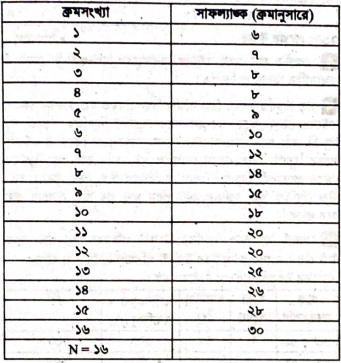 ক্রমসংখ্যা সাফল্যাঙ্ক (ক্রমানুসারে)
১ ৬
২ ৭
৩ ৮
৪ ৮
৫ ৯
৬ ১০
৭ ১২
৮ ১৪
৯ ১৫
১০ ১৮
১১ ২০
১২ ২০
১৩ ২৫
১৪ ২৬
১৫ ২৮
১৬ ৩০
N = ১৬